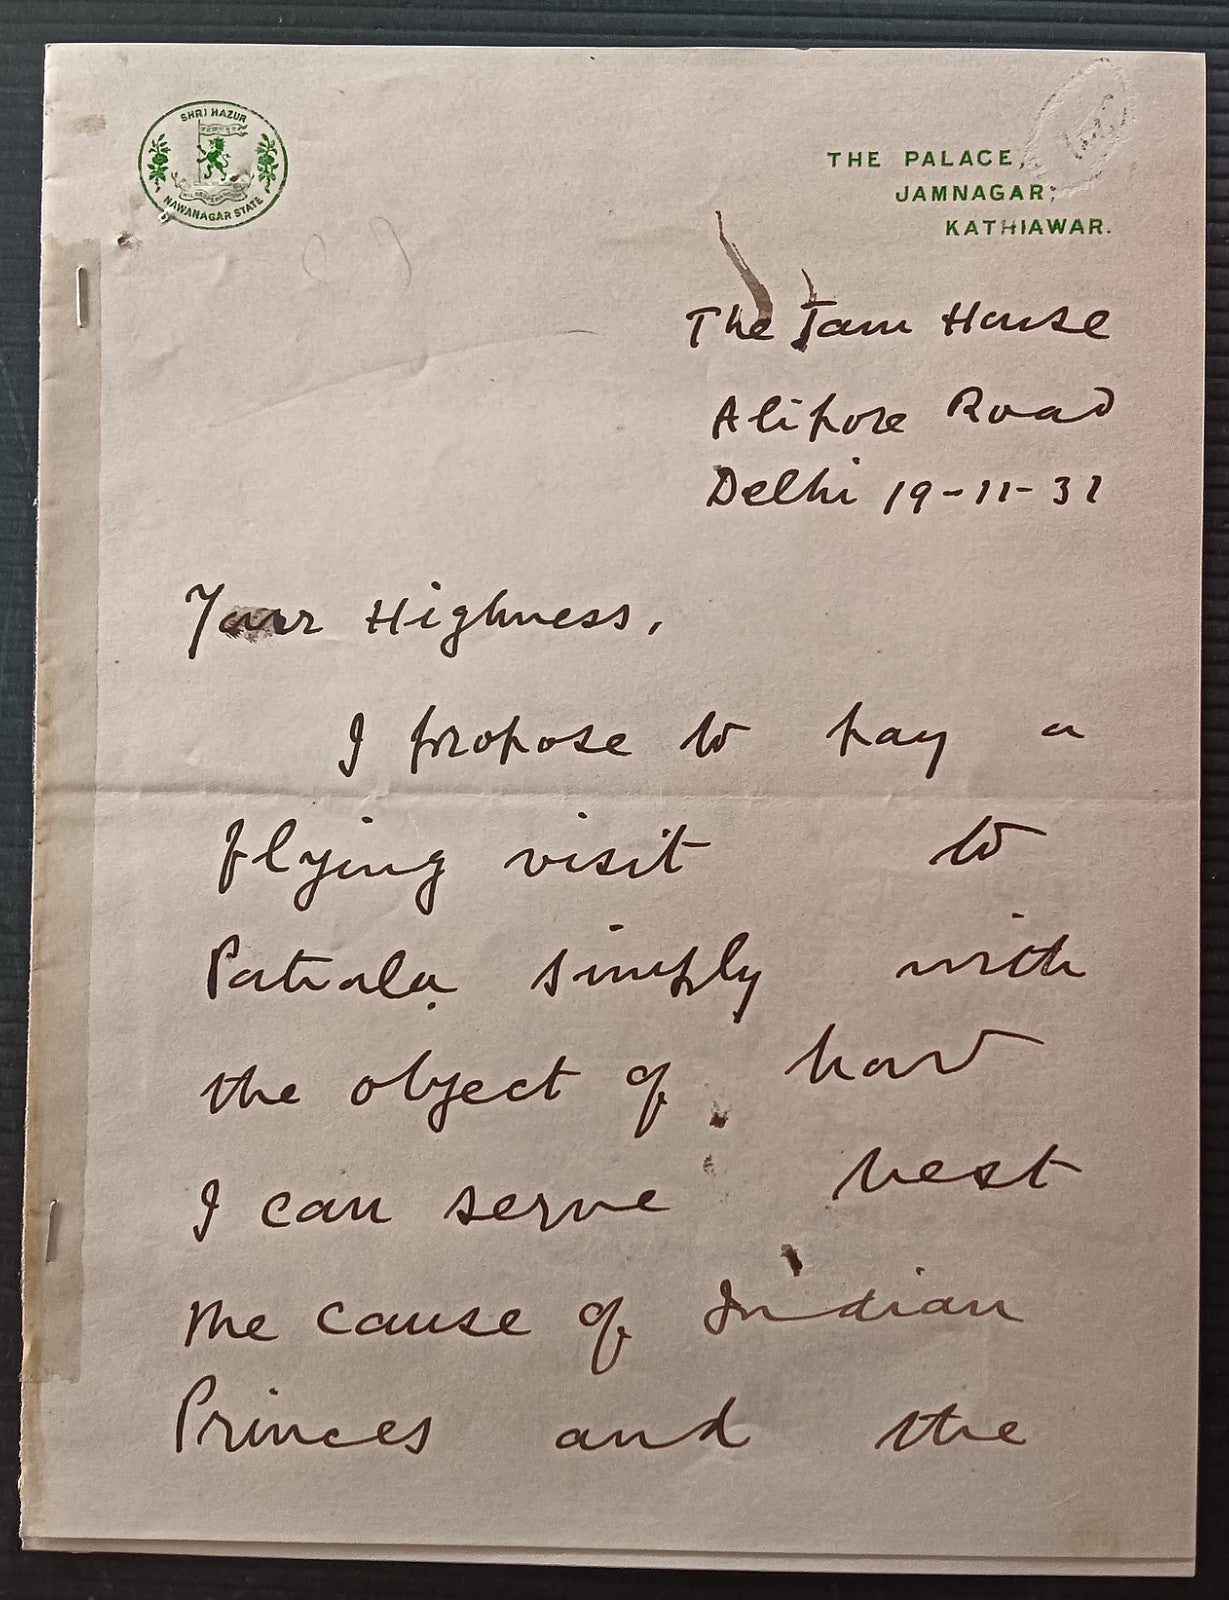 SHRI HAZUR
NAWANAGAR STATE
THE PALACE,
JAMNAGAR,
KATHIAWAR.
The Jam House
Alipore Road
Delhi 19-11-31
Your Highness,
I propose to pay a
flying visit to
Patiala simply with
the object of how
I can serve best
the cause of Indian
Princes and the